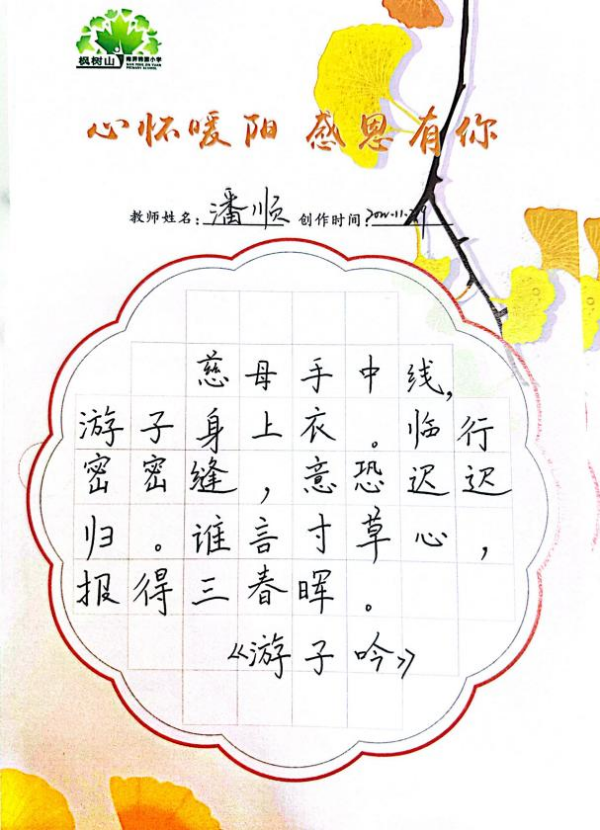 枫树山
心怀暖阳 感恩有你
教师姓名:潘顺 创作时间:
慈母手中线,
游子身上衣。临行
密密缝,意恐迟迟
归。谁言寸草心,
报得三春晖。
《游子吟》